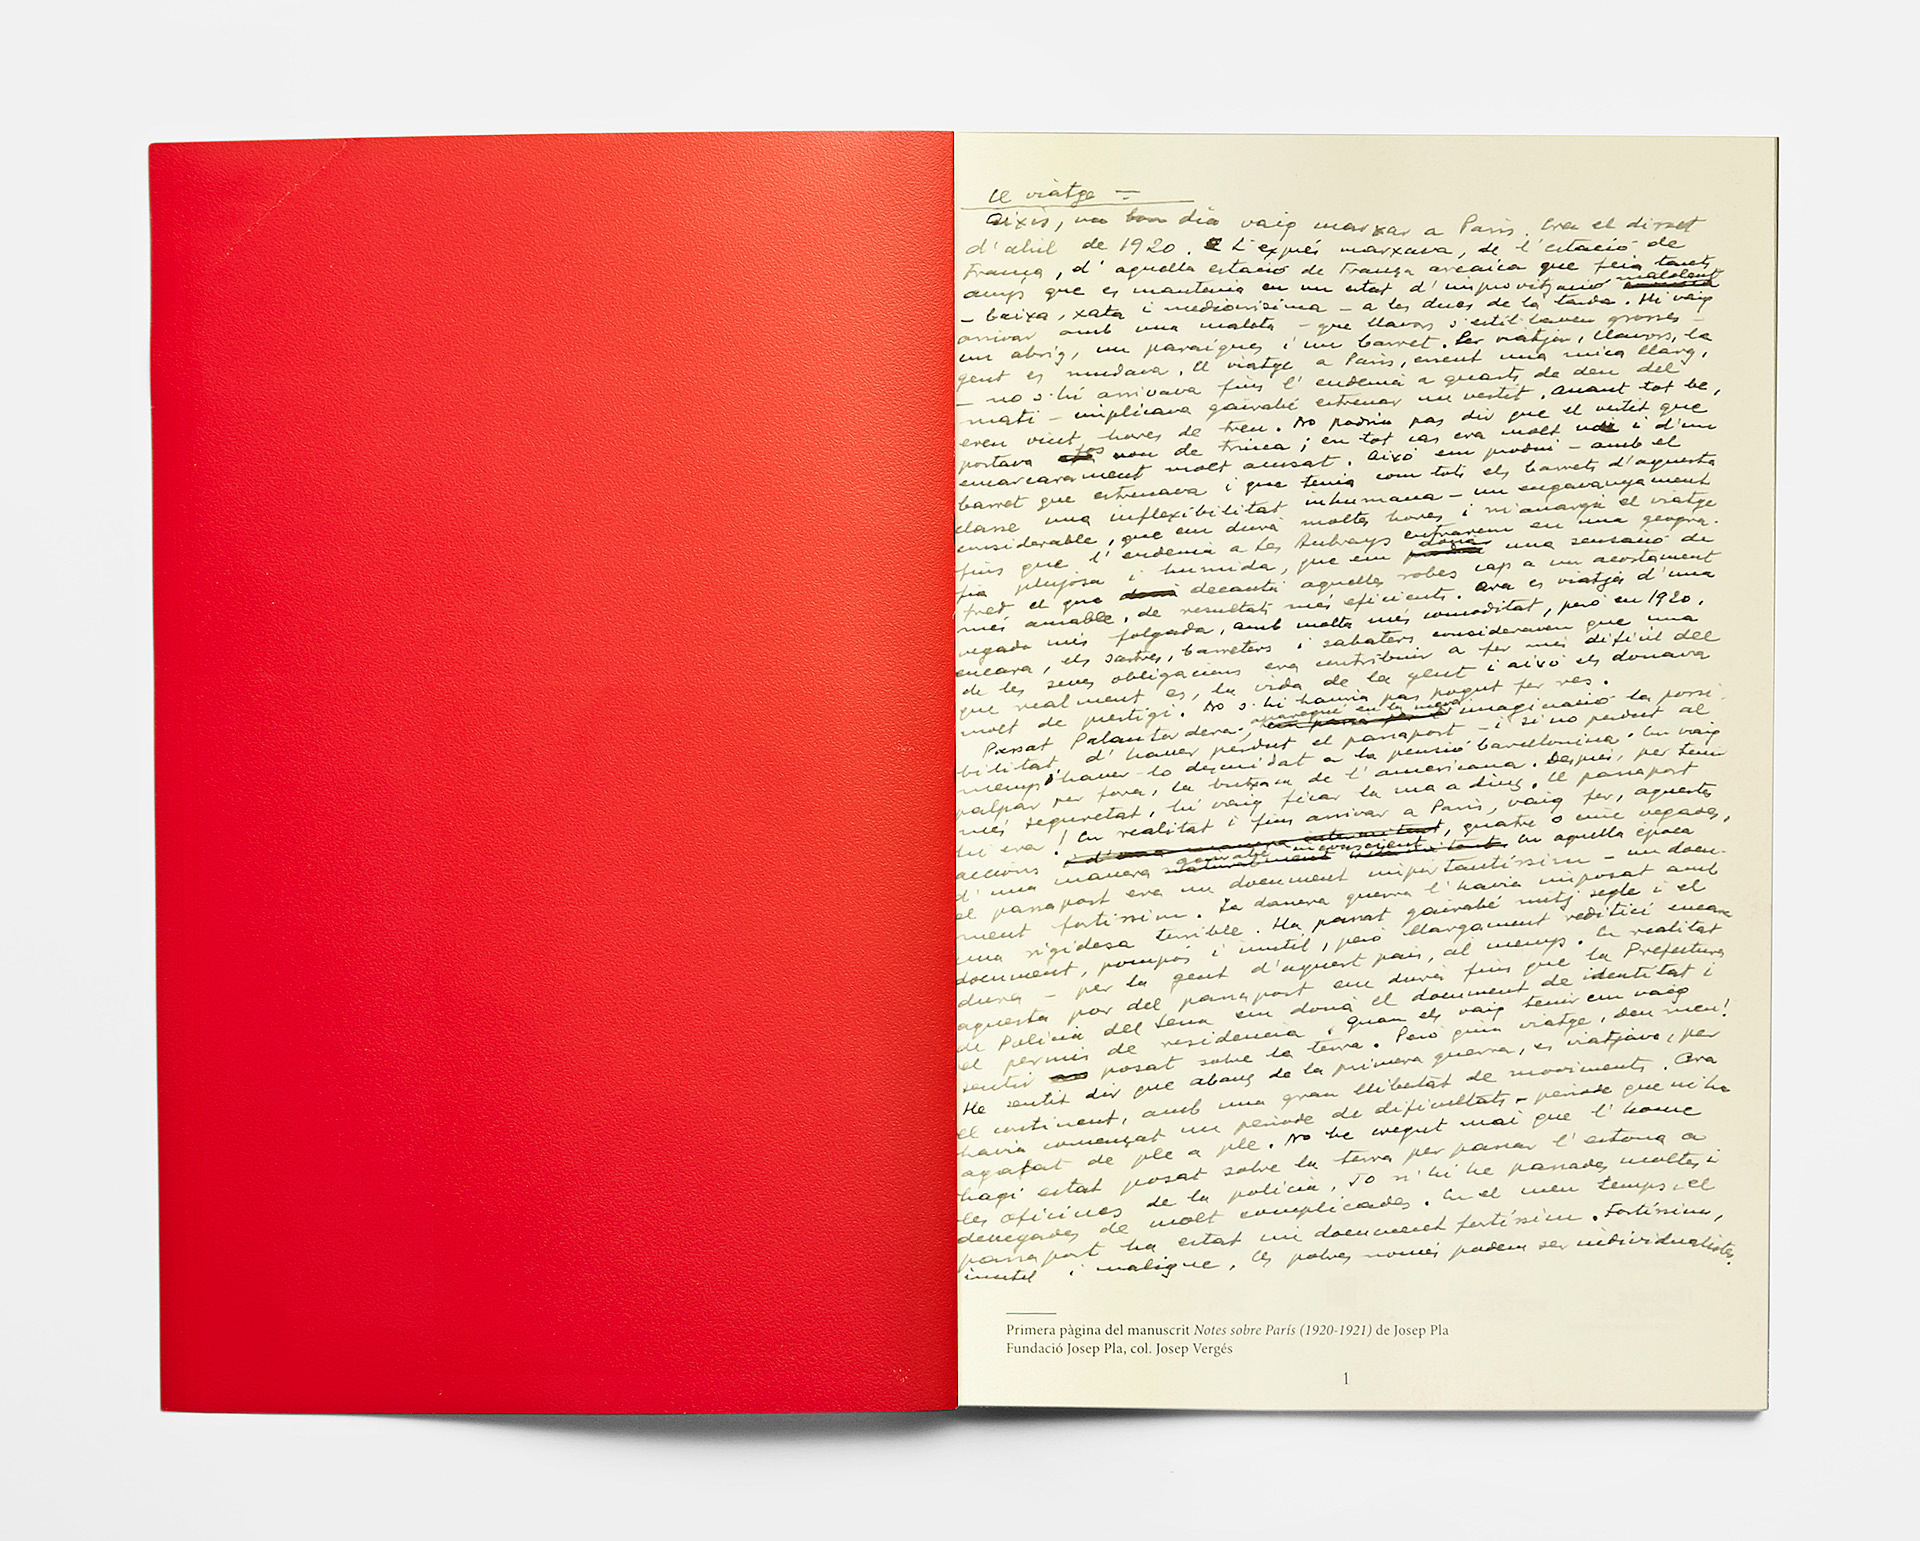 El viatge —
Aixís, un bon dia vaig marxar a París. Era el dissabt
d'abril de 1920. L'exprés marxava, de l'estació de
França, d'aquella estació de França arcaica que feia tants
anys que es mantenia en un estat d'improvització
— baixa, xata i mediocrisima — a les dues de la tarda. Hi vaig
arrivar amb una maleta — que llavors s'estil·laven grosses —
un abric, un paraigües i un barret. Per viatjar, llavors, la
gent es mudava. El viatge a París, essent una mica llarg,
— no s'hi arrivava fins l'endemà a quarts de deu del
mati — implicava gairabé estrenar un vestit. Anant tot be,
eren vint hores de tren. No podria pas dir que el vestit que
portava fos nou de trinca; en tot cas era molt nou i d'un
encarcarament molt acusat. Aixó em produí — amb el
barret que estrenava i que tenia com tots els barrets d'aquesta
classe una inflexibilitat inhumana — un engavanyament
considerable, que em durà moltes hores i m'amargà el viatge
fins que l'endemà a Les Aubrays entrarem en una geogra-
fia plujosa i humida, que em donà una sensació de
fred el que decantà aquelles robes cap a un acostament
més amable, de resultats més eficients. Ara es viatja d'una
vegada més folgada, amb molta més comoditat, peró en 1920,
encara, els sastres, barreters i sabaters consideraven que una
de les seves obligacions era contribuir a fer més difícil del
que realment es, la vida de la gent i aixó els donava
molt de prestigi. No s'hi hauria pas pogut fer res.
Passat Palautordera, aparegué en la meva imaginació la possi-
bilitat d'haver perdut el passaport — i si no perdut al
menys d'haver-lo descuidat a la pensió barcelonina. Em vaig
palpar per fora, la butxaca de l'americana. Després, per tenir
més seguretat, hi vaig ficar la ma a dins. El passaport
hi era! En realitat i fins arrivar a París, vaig fer, aquestes
accions, quatre o cinc vegades,
d'una manera gairabé inconscient. En aquella época
el passaport era un document importantíssim — un docu-
ment fortíssim. La darrera guerra l'havia imposat amb
una rigidesa terrible. Ha passat gairabé mitj segle i el
document, pompós i inutil, peró llargament reditici encara
dura — per la gent d'aquest pais, al menys. En realitat
aquesta por del passaport em durà fins que la Prefectura
de Policia del Sena em donà el document de identitat i
el permis de residencia. Quan els vaig tenir em vaig
sentir posat sobre la terra. Peró quin viatge, Deu meu!
He sentit dir que abans de la primera guerra, es viatjava, per
el continent, amb una gran llibertat de moviments. Ara
havia començat un periode de dificultats — periode que m'ha
agafat de ple a ple. No he cregut mai que l'home
hagi estat posat sobre la terra per passar l'estona a
les oficines de la policia. Jo n'hi he passades moltes i
denegades de molt complicades. En el meu temps, el
passaport ha estat un document fortíssim. Fortíssim,
inutil i maligne. Els pobres només podem ser individualistes.
Primera pàgina del manuscrit Notes sobre París (1920-1921) de Josep Pla
Fundació Josep Pla, col. Josep Vergés
1